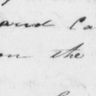 and Ca
on the